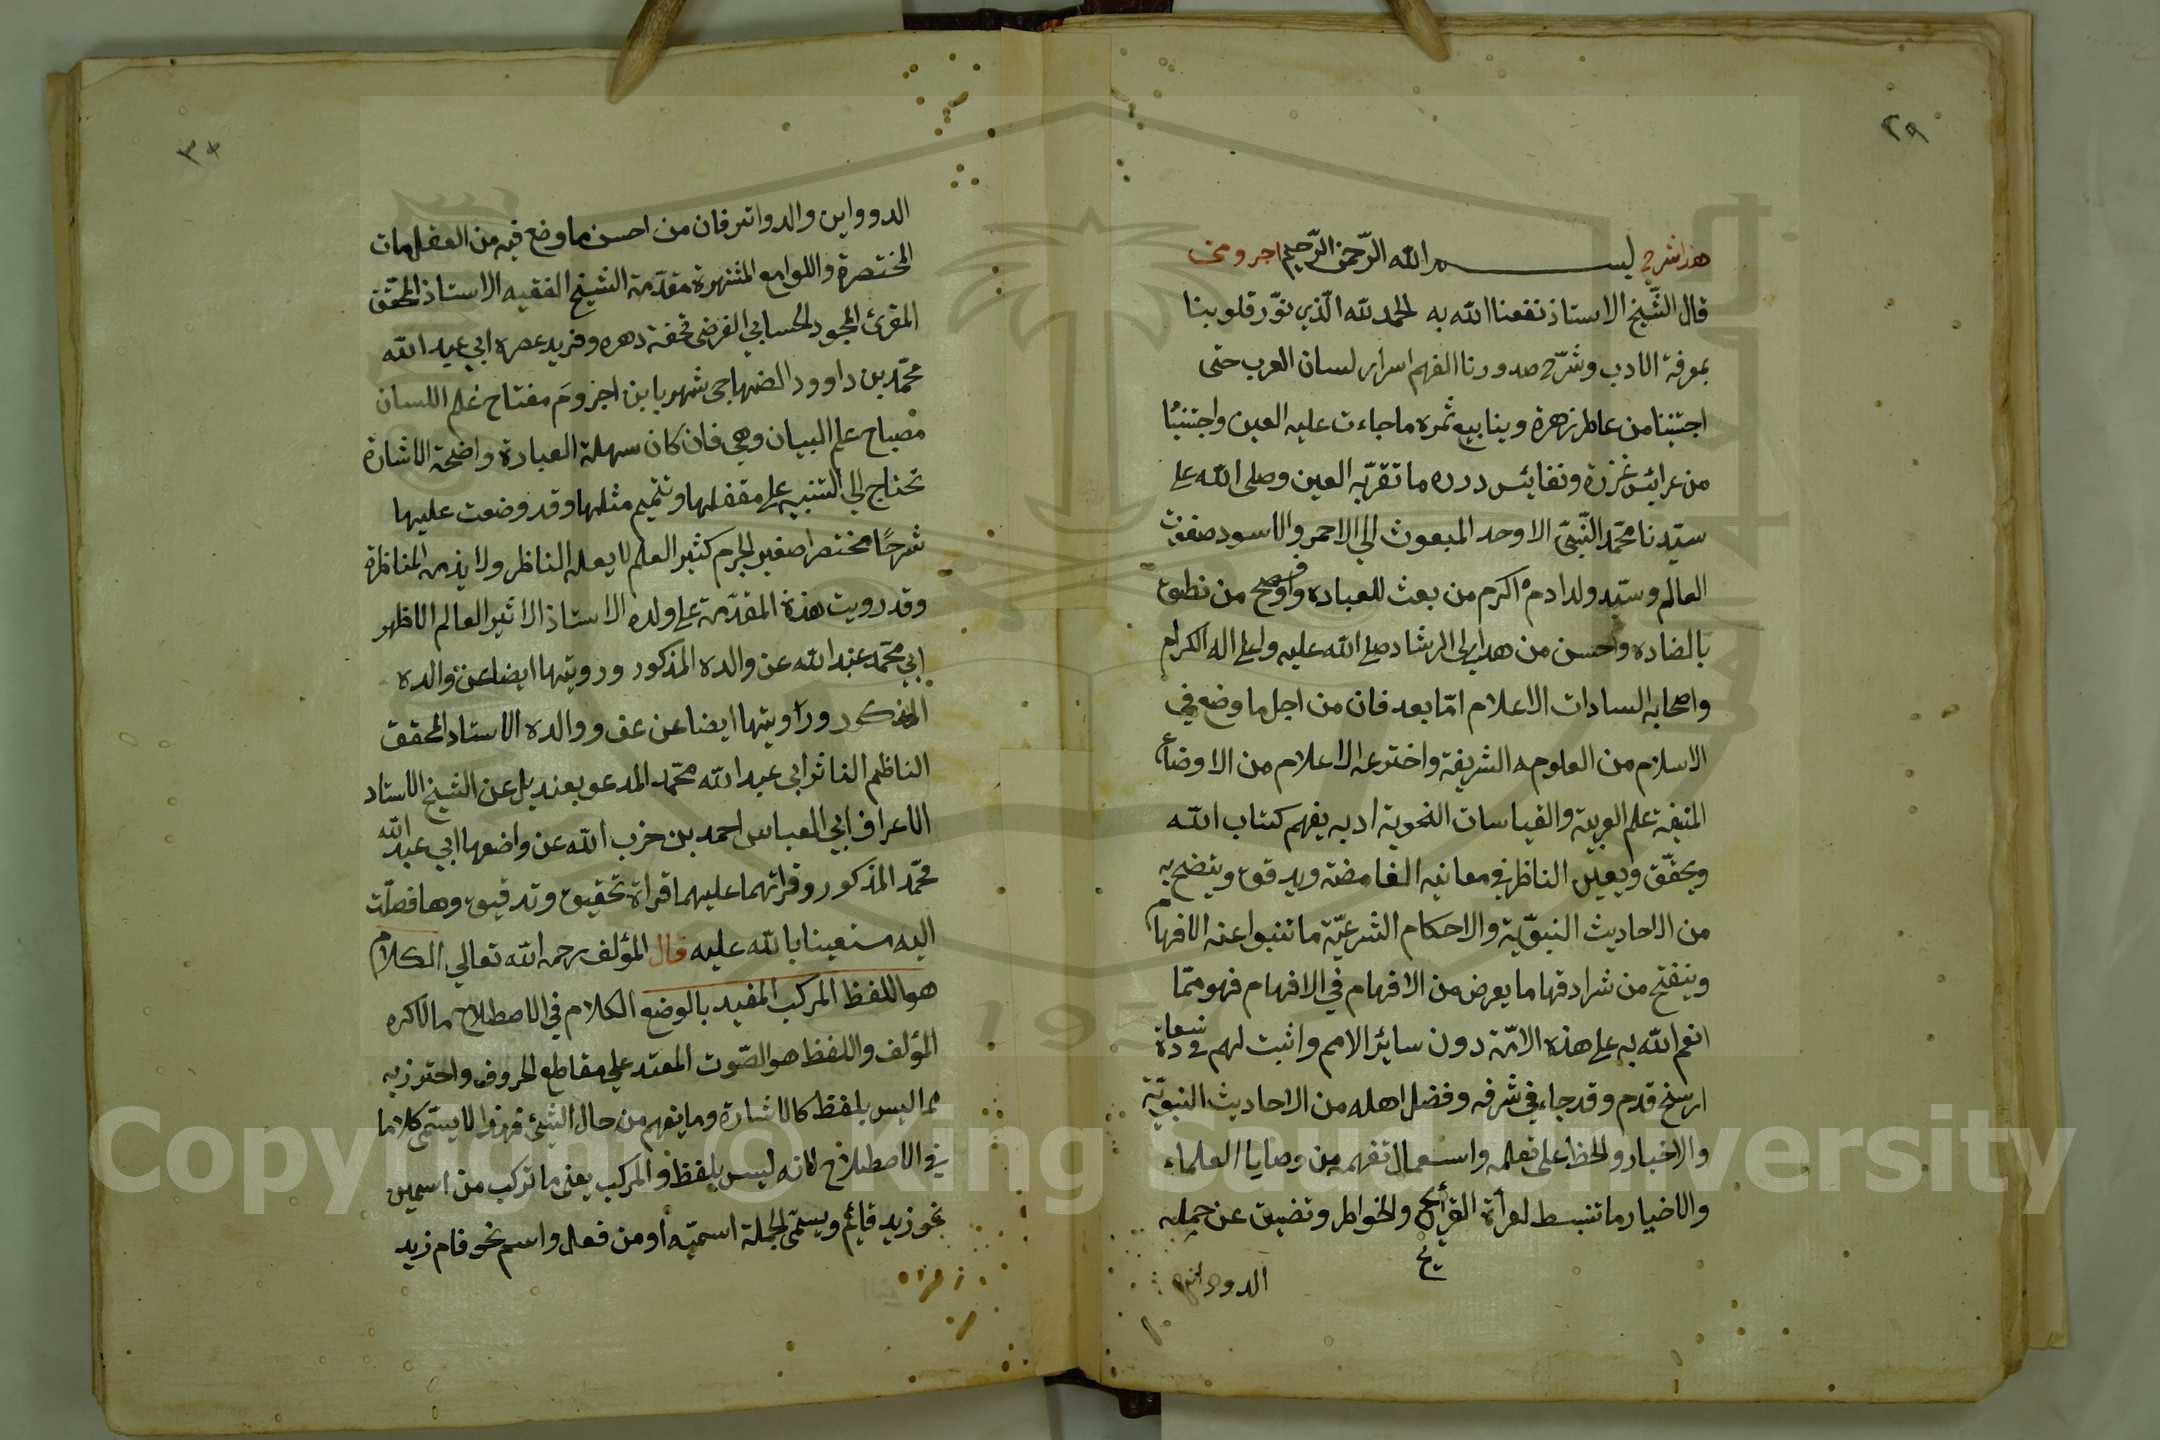 ٢٩
هذا شرح بسم الله الرّحمن الرّحيم اجرومى
قال الشّيخ الاستاذ نفعنا الله به الحمد لله الّذي نوّر قلوبنا
بمعرفة الادب وشرّح صدورنا الفهم اسرار لسان العرب حتى
اجتبنا من عاطر زهرة وينابيع ثمره ما جاءت عليه العين واجتنبنا
من عرائس غزرة ونفائس درره ما تقرّبه العين وصلى الله على
سيّدنا محمّد النّبىّ الاوحد المبعوث الى الاحمر والاسود صفوت
العالم وسيّد ولد ادم اكرم من بعث للعباده وافصح من نطق
بالضاده واحسن من هدا الى الرشاد صلى الله عليه وعلى اله الكرام
واصحابه السادات الاعلام امّا بعد فان من اجل ما وضع في
الاسلام من العلومه الشريفة واخترعه الاعلام من الاوضاع
المنيفة علم العربية والقياسات النحوية اد به يفهم كتاب الله
ويحقّق ويعين الناظر في معانيه الغامضة ويدقق ويتضح به
من الاحاديث النبوّية والاحكام الشرعيّة ما تنبوا عنه الافهام
وينفتح من شرادقها ما يعرض من الافهام في الافهام فهو ممّا
انعم الله به على هذه الامّة دون سائر الامم واثبت لهم في
ارسخ قدم وقد جاء في شرفه وفضل اهله من الاحاديث النبويّة
والاخبار والحظ على تعلمه واستعمال تفهمه من وصايا العلماء
والاخيار ما تنبسط لقرأة القرأئح والخواطر وتضيق عن جمله
ىح
الدوواين
٣٠
الدوواين والدواتر فان من احسن ما وضع فيه من المقدمات
المختصرة واللوامع المشتهرة مقدّمة الشيخ الفقيه الاستاذ المحقّق
المقرئ المجود الحسابي الفرضى تحفة دهره وفريد عصره ابي عبد الله
محمّد بن داوود الصنهاجى شهر بابن اجزومَ مفتاح علم اللسان
مصباح علم البيان وهي فان كان سهلة العبادة واضحة الاشارة
تحتاج الى التنبيه على مقفلها وتتميم مثلها وقد وضعت عليها
شرحًا مختصرا صغير الجرم كثير العلم لا يمله الناظر ولا يذمه المناظرة
وقد رويت هذه المقدّمة على ولده الاستاذ الاثير العالم الاظهر
ابي محمّد عبد الله عن والده المذكور ورويتها ايضا عن والده
المذكور وراويتها ايضا عن عف ووالده الاستاد المحقق
الناظم الناثر ابى عبد الله محمّد المدعو بعنديل عن الشيخ الاستاد
الاعراف ابي العباس احمد بن حزب الله عن واضعها ابي عبد الله
محمّد المذكور وقراتهما عليهما قراة تحقيق وتدقيق وها فصلّت
اليه مستعينا بالله عليه قال المؤلف رحمه الله تعالى الكلام
هو اللفظ المركب المفيد بالوضع الكلام في الاصطلاح ما لاكره
المؤلف واللفظ هو الصّوت المعتد على مقاطع الحروف واحترز به
مما ليس بلفظ كالاشارة وما يفهم من حال الشيئ فهذا لا يسمّى كلاما
في الاصطلاح لانه ليس بلفظ والمركب يعنى ما تركب من اسمين
نحو زيد قائم ويسمّى الجملة اسميّه او من فعل واسم نحو قام زيد
Copyright © King Saud University
195